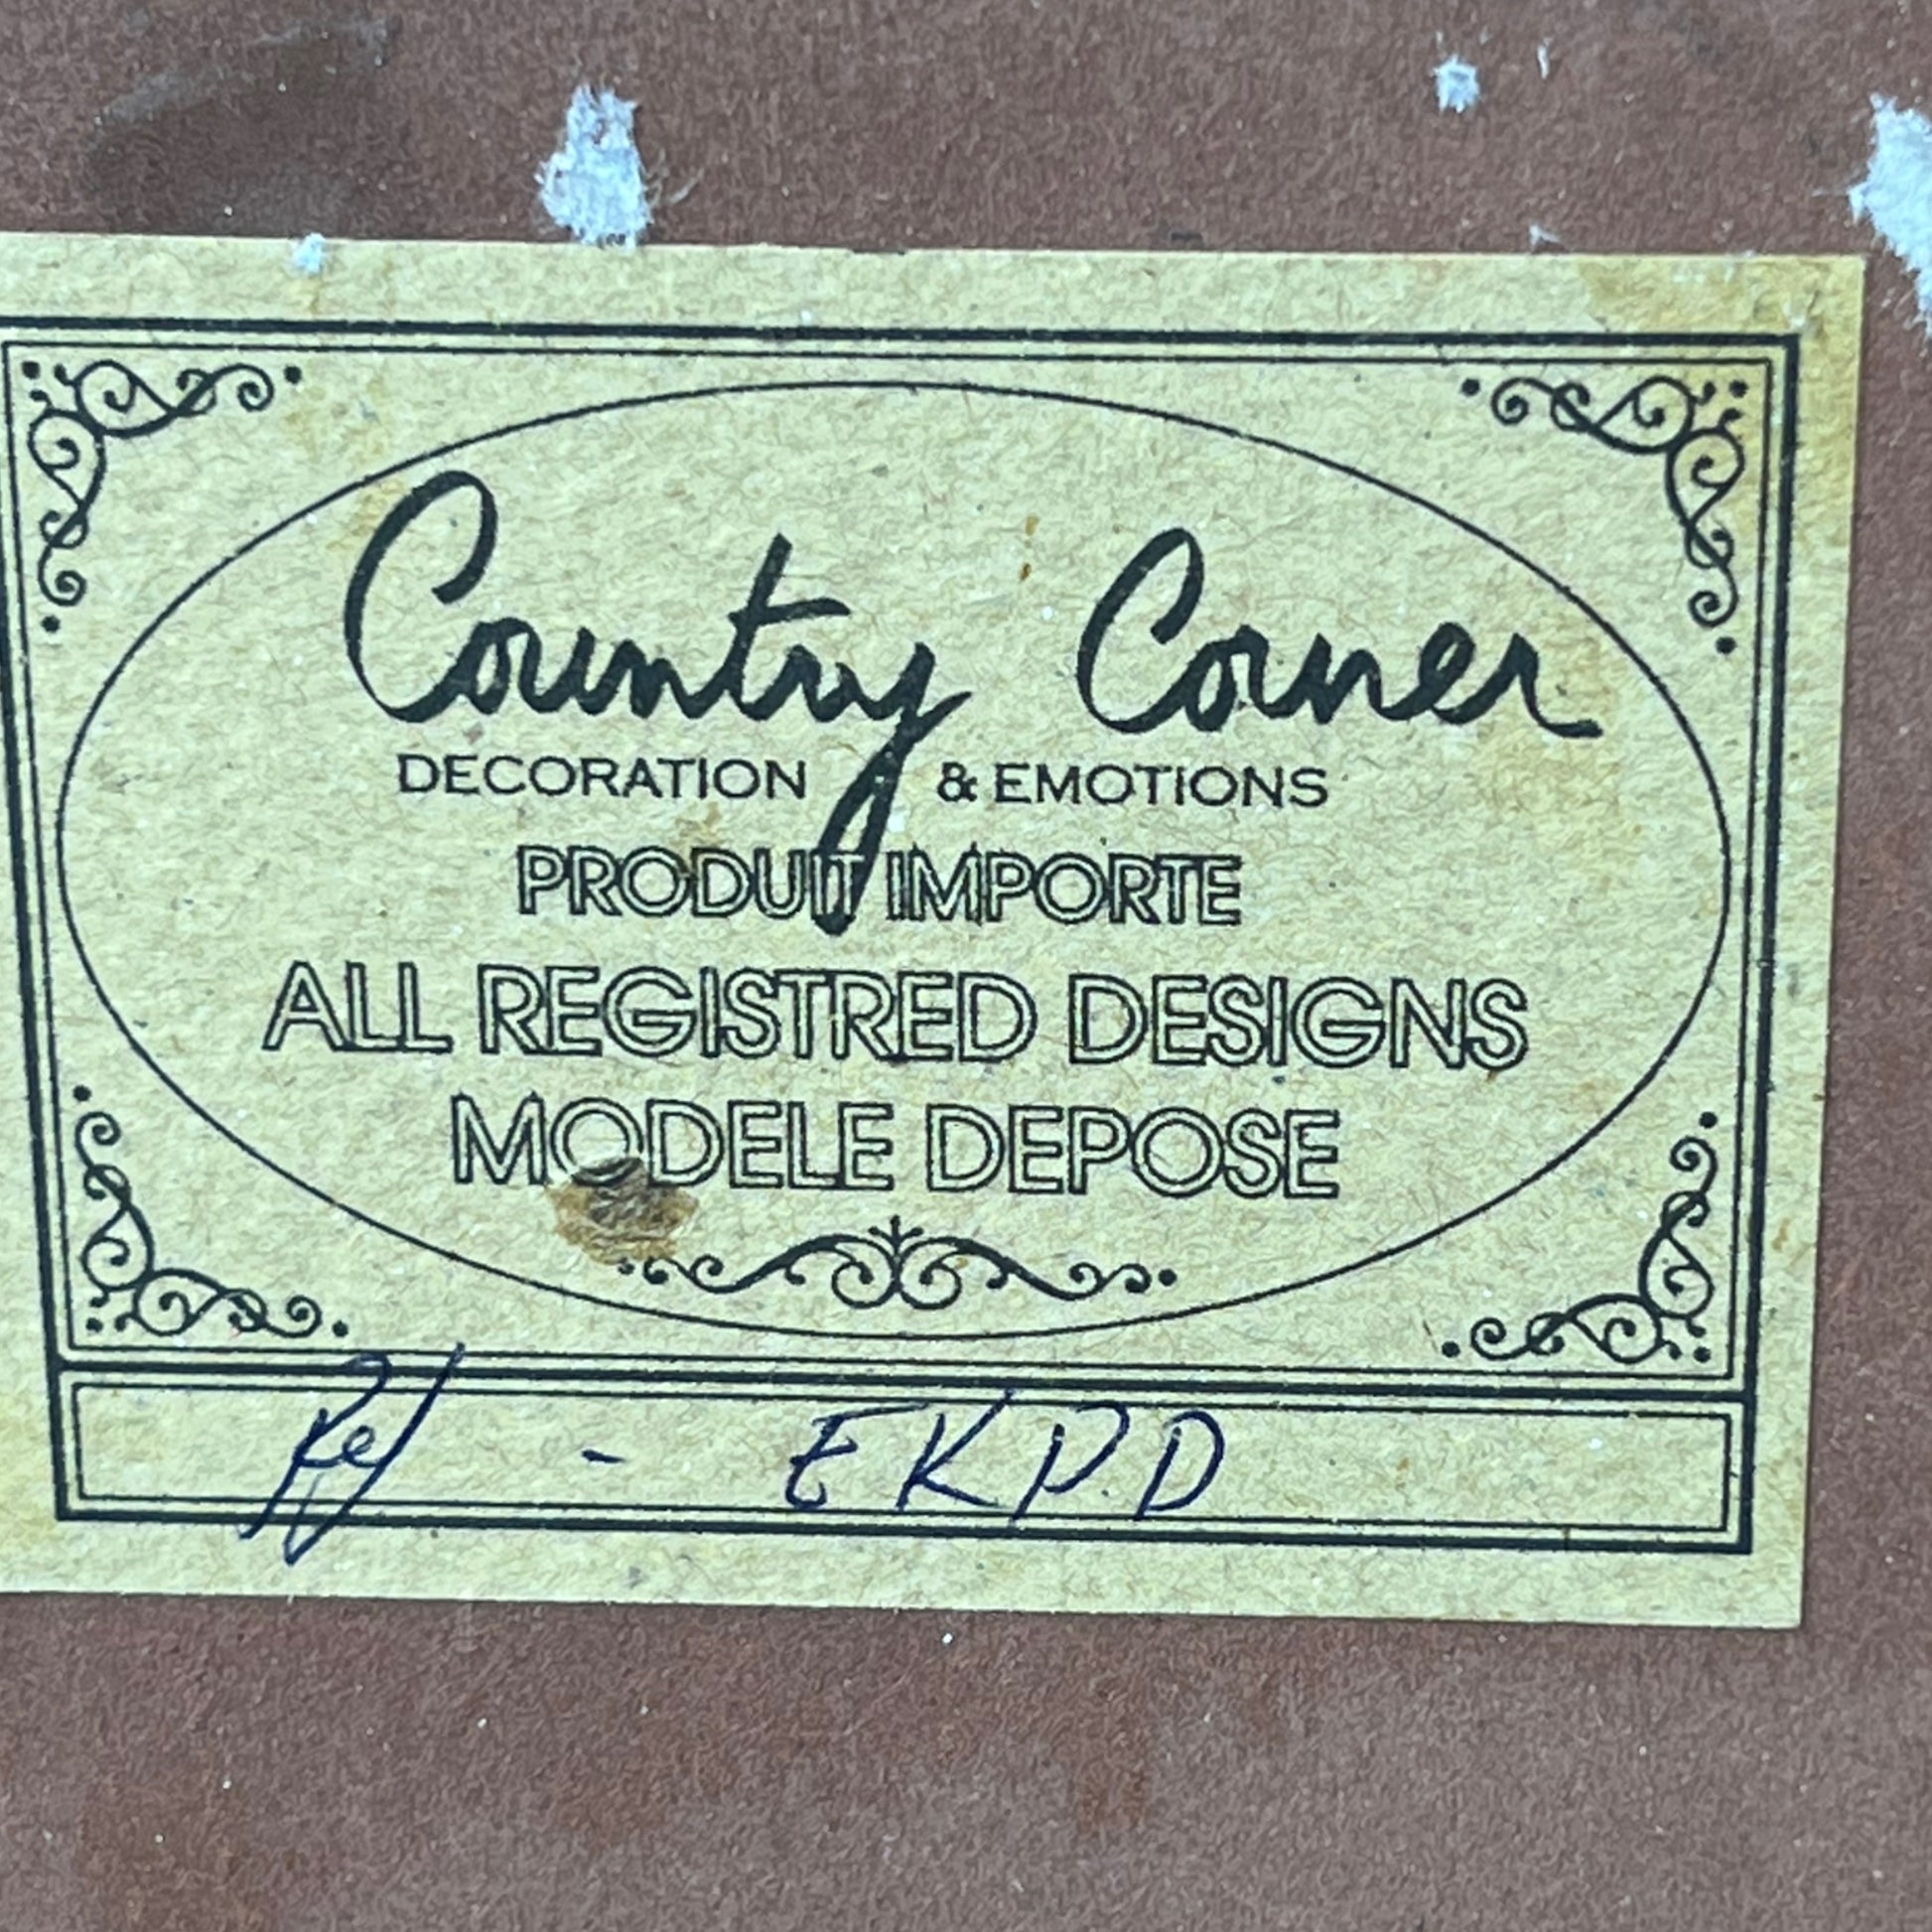 Country Corner
DECORATION & EMOTIONS
PRODUIT IMPORTE
ALL REGISTRED DESIGNS
MODELE DEPOSE
Ref - EKPD